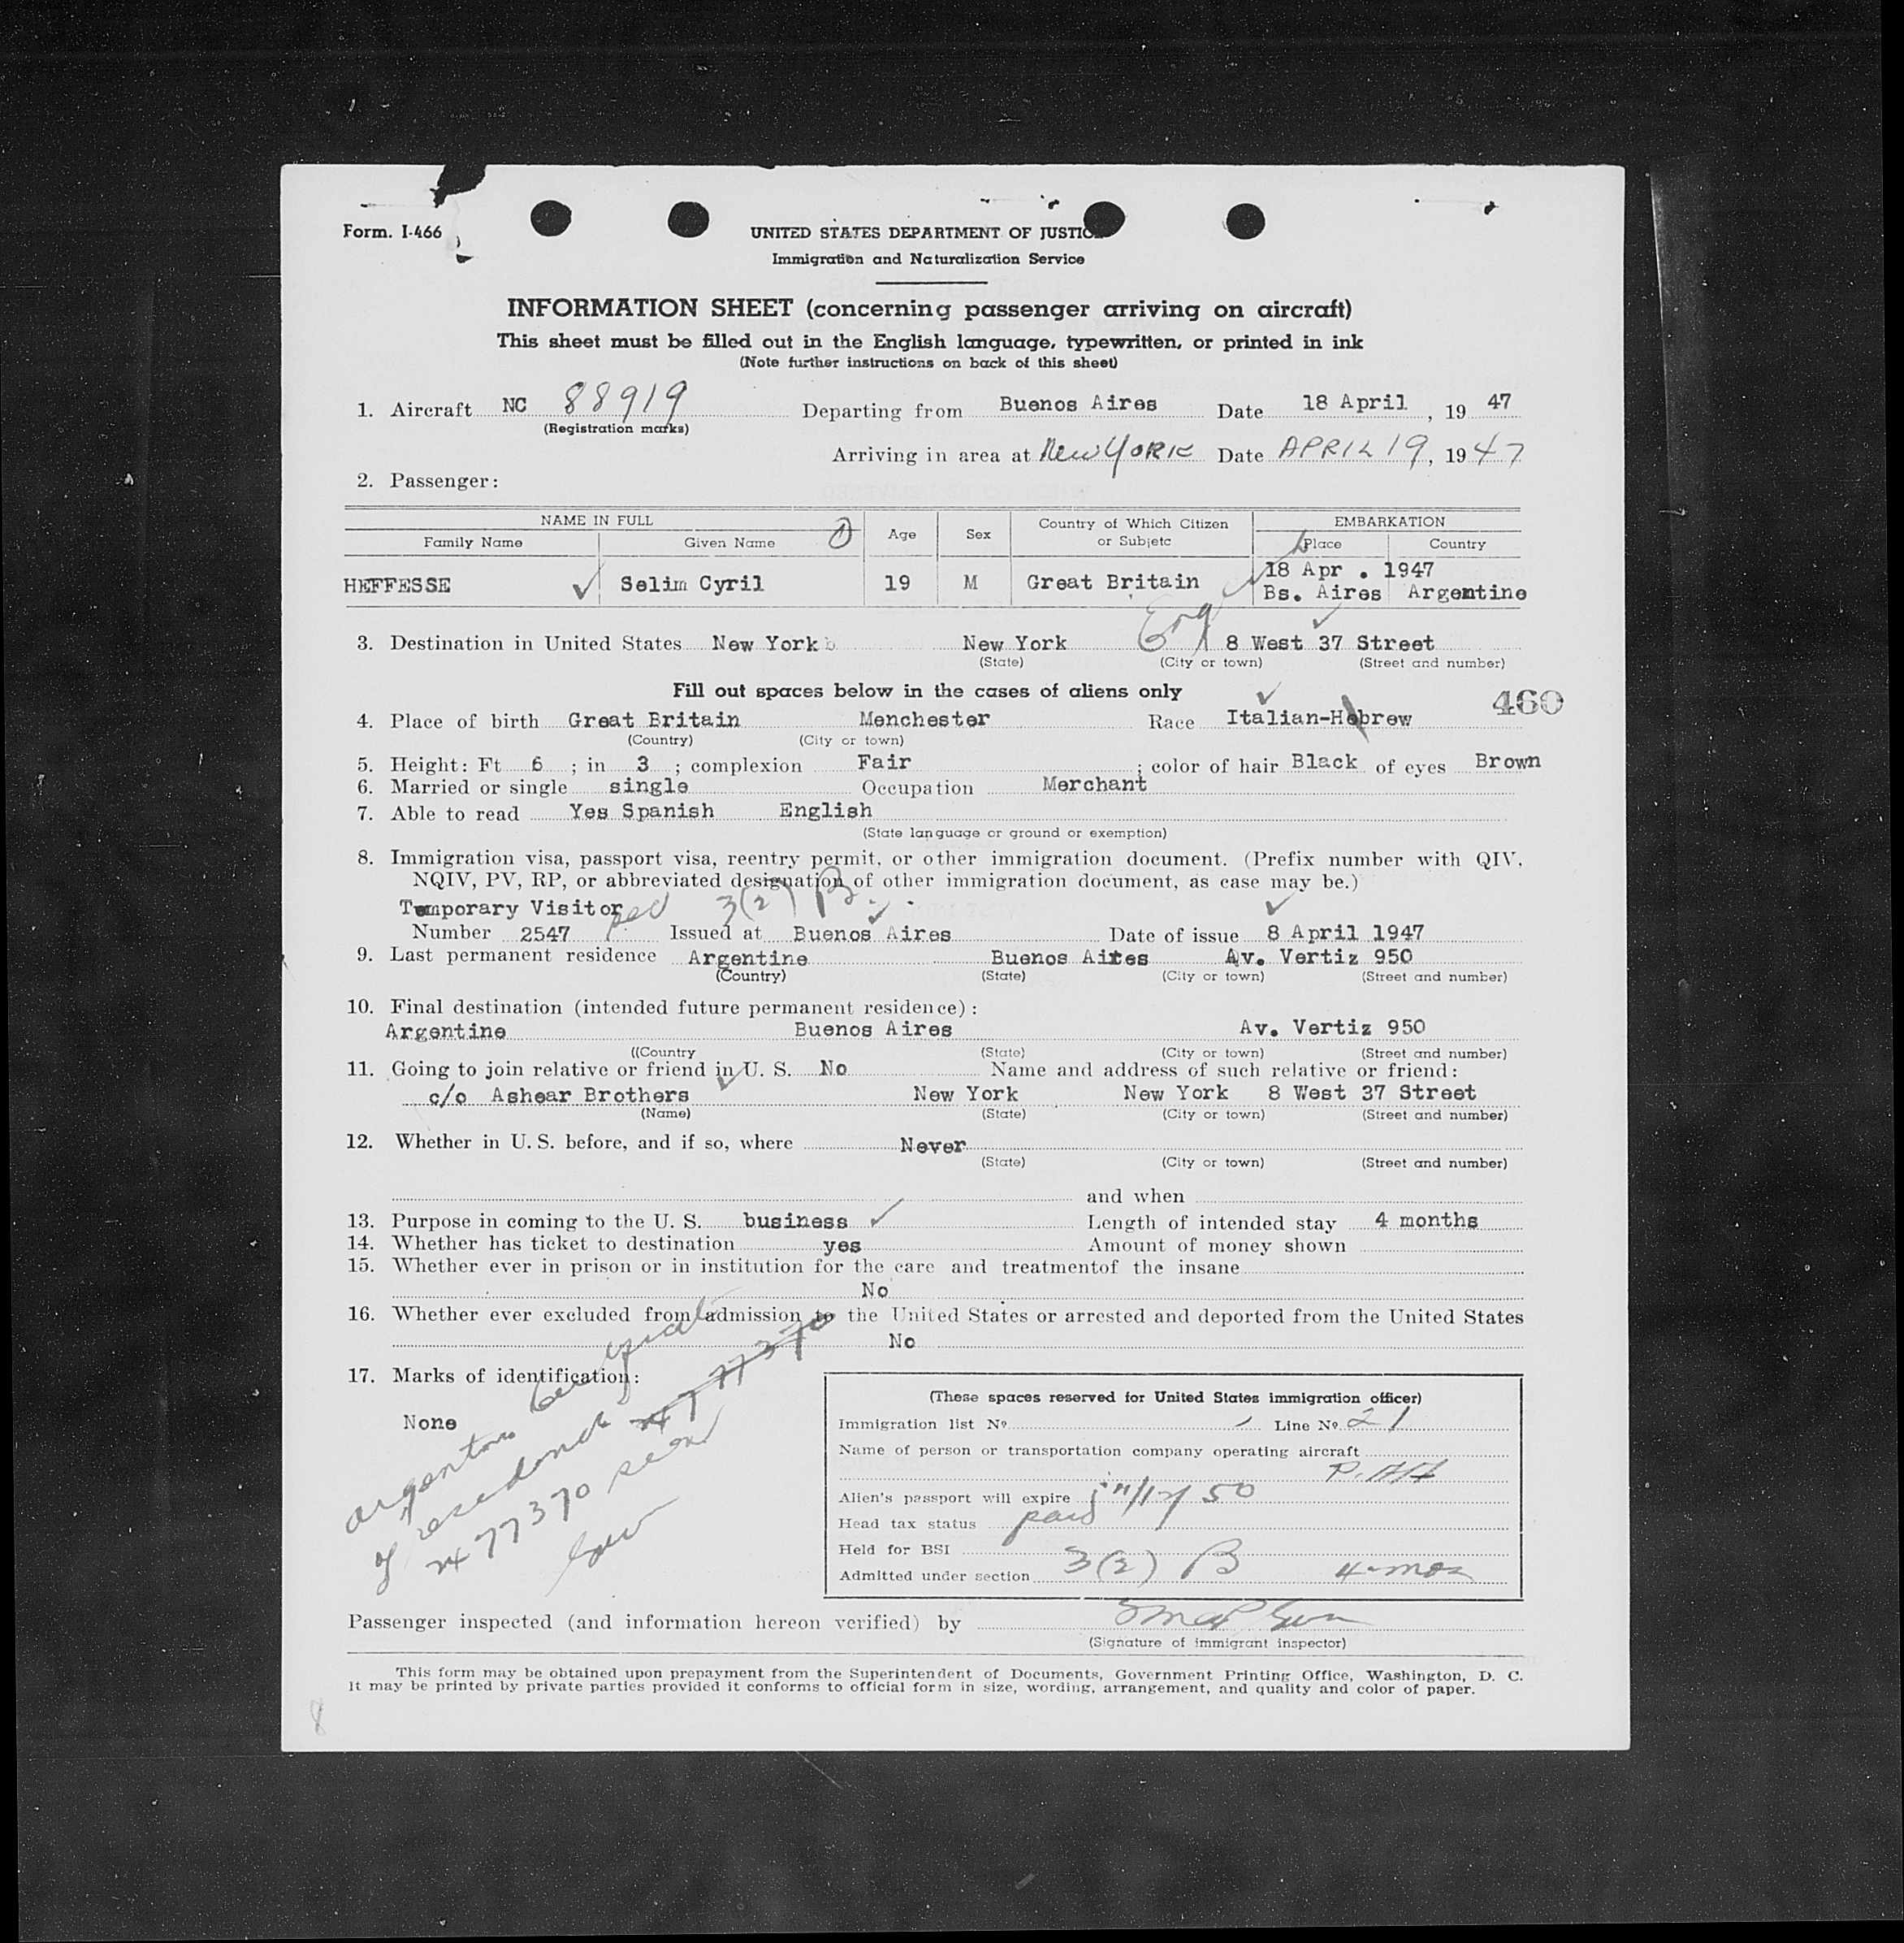 Form. I-466
UNITED STATES DEPARTMENT OF JUSTIC
Immigration and Naturalization Service
INFORMATION SHEET (concerning passenger arriving on aircraft)
This sheet must be filled out in the English language, typewritten, or printed in ink
(Note further instructions on back of this sheet)
1. Aircraft NC 88919 Departing from Buenos Aires Date 18 April, 19 47
(Registration marks)
Arriving in area at New YORK Date APRIL 19, 19 47
2. Passenger:
NAME IN FULL Age Sex Country of Which Citizen or Subjetc EMBARKATION
Family Name Given Name Place Country
18 Apr . 1947
HEFFESSE Selim Cyril 19 M Great Britain Bs. Aires Argentine
Eng
3. Destination in United States New York New York 8 West 37 Street
(State) (City or town) (Street and number)
Fill out spaces below in the cases of aliens only
460
4. Place of birth Great Britain Menchester Race Italian-Hebrew
(Country) (City or town)
5. Height: Ft 6 ; in 3 ; complexion Fair ; color of hair Black of eyes Brown
6. Married or single single Occupation Merchant
7. Able to read Yes Spanish English
(State language or ground or exemption)
8. Immigration visa, passport visa, reentry permit, or other immigration document. (Prefix number with QIV,
NQIV, PV, RP, or abbreviated designation of other immigration document, as case may be.)
Temporary Visitor 3(2) B
Number 2547 Issued at Buenos Aires Date of issue 8 April 1947
9. Last permanent residence Argentine Buenos Aires Av. Vertiz 950
(Country) (State) (City or town) (Street and number)
10. Final destination (intended future permanent residence):
Argentine Buenos Aires Av. Vertiz 950
((Country (State) (City or town) (Street and number)
11. Going to join relative or friend in U. S. No Name and address of such relative or friend:
c/o Ashear Brothers New York New York 8 West 37 Street
(Name) (State) (City or town) (Street and number)
12. Whether in U. S. before, and if so, where Never
(State) (City or town) (Street and number)
and when
13. Purpose in coming to the U. S. business Length of intended stay 4 months
14. Whether has ticket to destination yes Amount of money shown
15. Whether ever in prison or in institution for the care and treatmentof the insane
No
16. Whether ever excluded from admission to the United States or arrested and deported from the United States
No
17. Marks of identification:
None
77370
(These spaces reserved for United States immigration officer)
Immigration list Nº Line Nº 21
Name of person or transportation company operating aircraft
P.AA
Alien's passport will expire 50
Head tax status paid
Held for BSI
Admitted under section 3(2) B 4-mos
Passenger inspected (and information hereon verified) by
(Signature of immigrant inspector)
This form may be obtained upon prepayment from the Superintendent of Documents, Government Printing Office, Washington, D. C.
It may be printed by private parties provided it conforms to official form in size, wording, arrangement, and quality and color of paper.
8